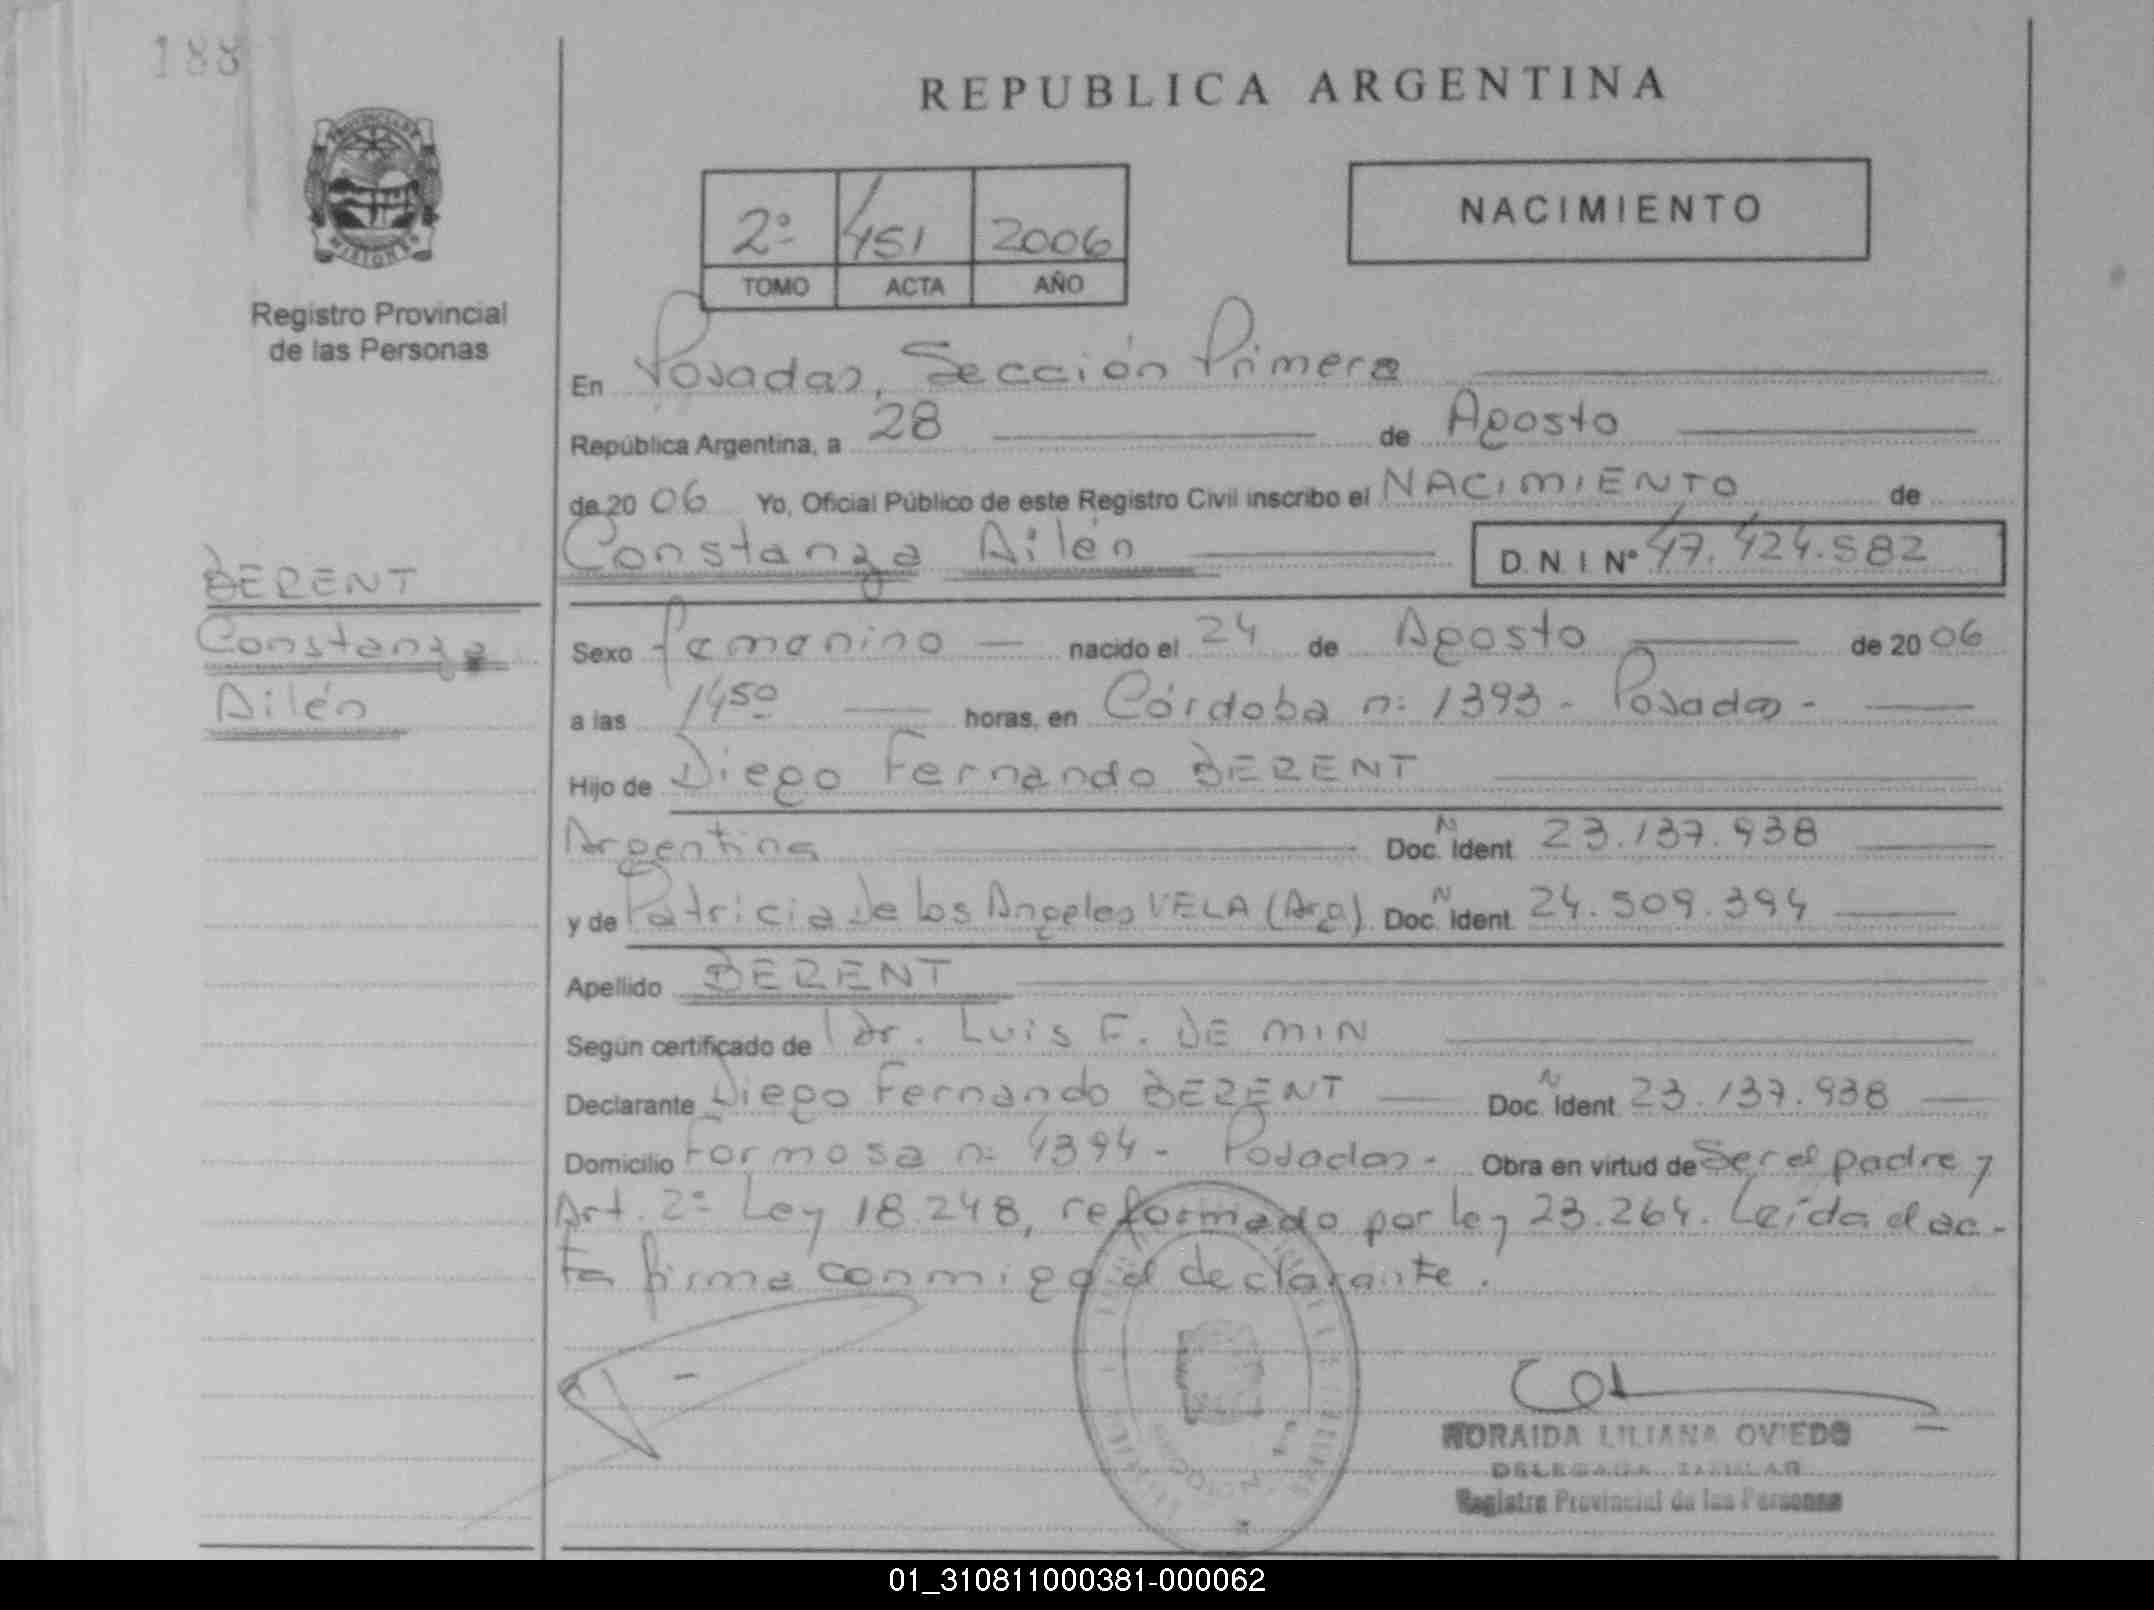 188
REPUBLICA ARGENTINA
2º 451 2006
TOMO ACTA AÑO
NACIMIENTO
Registro Provincial
de las Personas
En Posadas, Sección Primera
República Argentina, a 28 de Agosto
de 2006 Yo, Oficial Público de este Registro Civil inscribo el NACIMIENTO de
Constanza Ailén D.N.I. Nº 47.424.582
BERENT
Constanza
Ailén
Sexo femenino nacido el 24 de Agosto de 2006
a las 14⁵⁰ horas, en Córdoba nº 1393 - Posadas -
Hijo de Diego Fernando BERENT
Argentina Doc. N Ident 23.137.938
y de Patricia de los Angeles VELA (Arg). Doc. N Ident. 24.509.394
Apellido BERENT
Según certificado de Dr. Luis F. DE MIN
Declarante Diego Fernando BERENT Doc. N Ident 23.137.938
Domicilio Formosa nº 4394 - Posadas - Obra en virtud de Ser el padre y
Art. 2º Ley 18.248, reformado por ley 23.264. Leída el ac-
ta firma conmigo el declarante.
NORAIDA LILIANA OVIEDO
DELEGADA TITULAR
Registro Provincial de las Personas
01_310811000381-000062